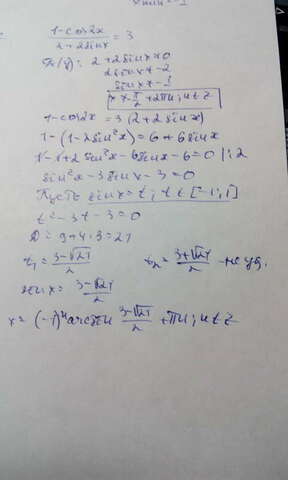 1-cos2x / 2+2sinx = 3
2+2sinx≠0
2sinx≠-2
sinx≠-1
x≠-π/2+2πn; n∈Z
1-cos2x=3(2+2sinx)
1-(1-2sin²x)=6+6sinx
1-1+2sin²x-6sinx-6=0 |:2
sin²x-3sinx-3=0
Пусть sinx=t, t∈[-1;1]
t²-3t-3=0
D=9+4·3=21
t₁=3-√21/2 t₂=3+√21/2 -не уд.
sinx=3-√21/2
x=(-1)ⁿarcsin 3-√21/2+πn; n∈Z